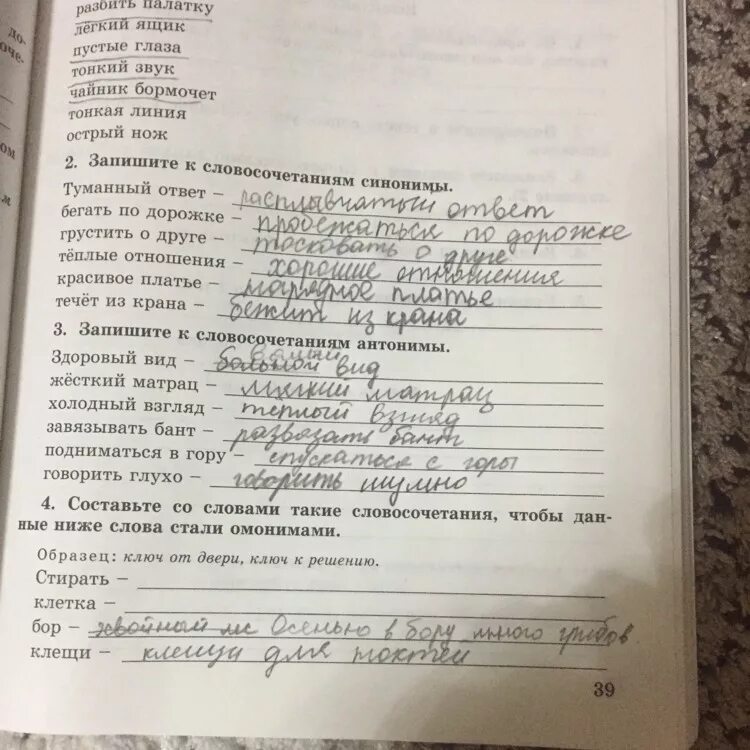 разбить палатку
лёгкий ящик
пустые глаза
тонкий звук
чайник бормочет
тонкая линия
острый нож
2. Запишите к словосочетаниям синонимы.
Туманный ответ – расплывчатый ответ
бегать по дорожке – пробежаться по дорожке
грустить о друге – тосковать о друге
тёплые отношения – хорошие отношения
красивое платье – нарядное платье
течёт из крана – бежит из крана
3. Запишите к словосочетаниям антонимы.
Здоровый вид – больной вид
жёсткий матрац – мягкий матрац
холодный взгляд – тёплый взгляд
завязывать бант – развязать бант
подниматься в гору – спускаться с горы
говорить глухо – говорить шумно
4. Составьте со словами такие словосочетания, чтобы дан-
ные ниже слова стали омонимами.
Образец: ключ от двери, ключ к решению.
Стирать –
клетка –
бор – хвойный лес Осенью в бору много грибов
клещи – клещи для ногтей
39